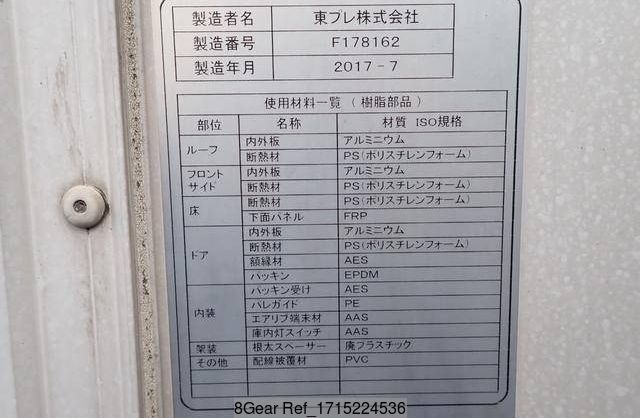 製造者名 東プレ株式会社
製造番号 F178162
製造年月 2017-7
使用材料一覧 (樹脂部品)
部位 名称 材質 ISO規格
ルーフ 内外板 アルミニウム
断熱材 PS(ポリスチレンフォーム)
フロント サイド 内外板 アルミニウム
断熱材 PS(ポリスチレンフォーム)
床 断熱材 PS(ポリスチレンフォーム)
下面パネル FRP
ドア 内外板 アルミニウム
断熱材 PS(ポリスチレンフォーム)
額縁材 AES
パッキン EPDM
内装 パッキン受け AES
パレガイド PE
エアリブ端末材 AAS
庫内灯スイッチ AAS
架装 根太スペーサー 廃プラスチック
その他 配線被覆材 PVC
8Gear Ref_1715224536